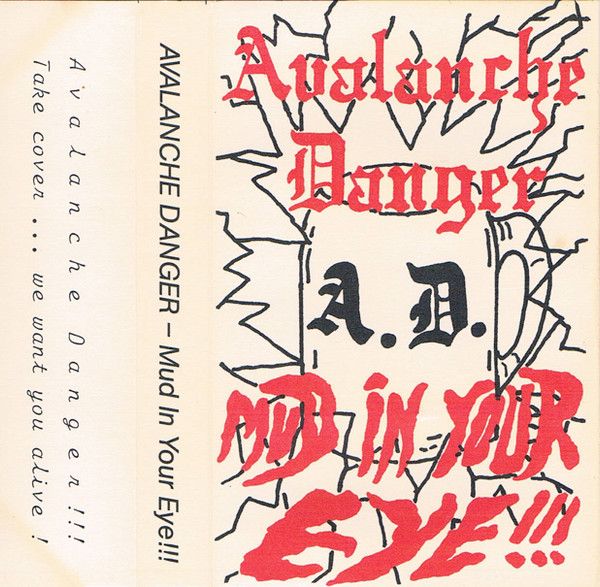 Avalanche Danger!!!
Take cover ... we want you alive!
AVALANCHE DANGER – Mud In Your Eye!!!
Avalanche
Danger
A.D.
MUD IN YOUR
EYE!!!